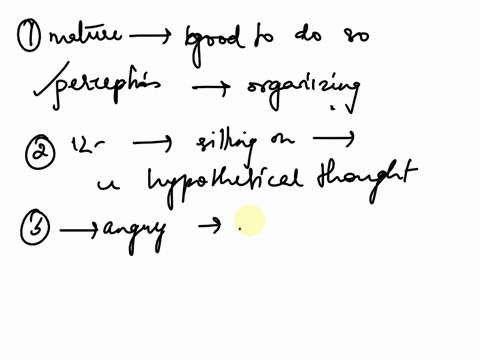 ① mature → good to do so
✓ perception → organizing
② 12 → sitting on →
hypothetical thought
③ → angry → .